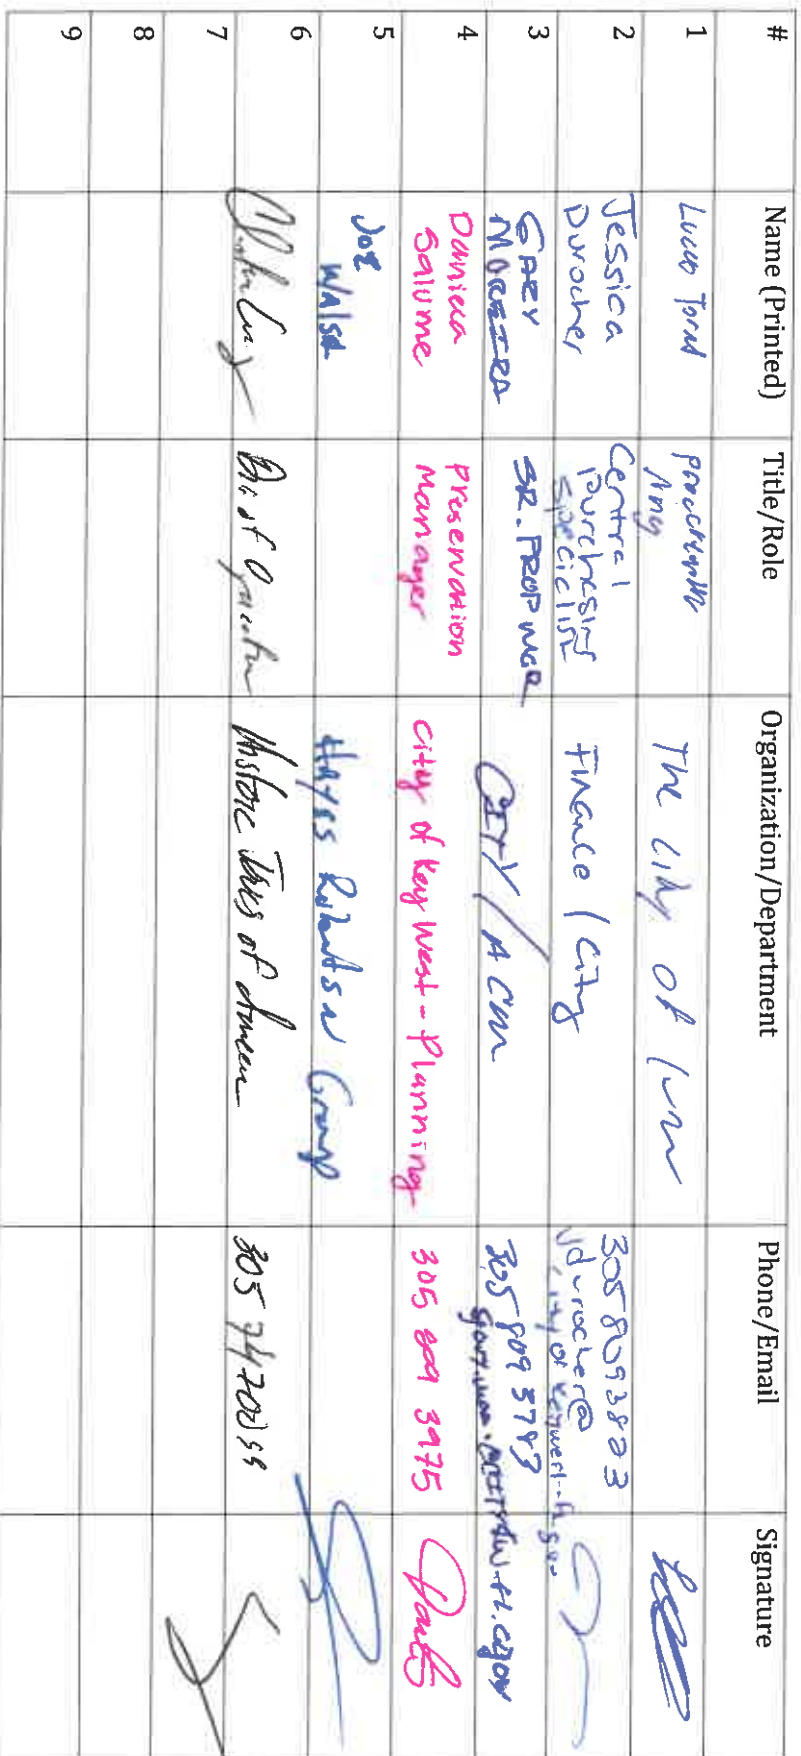 # Name (Printed) Title/Role Organization/Department Phone/Email Signature
1 The City of
2 Jessica Durocher
Central Purchasing Specialist
Finance / City
305 809 3823
jdurocher@
cityofkeywest-fl.gov
3 GARY MOREIRA
SR. PROP MGR
CITY / ACM
305 809 3783
4 Daniela Salume
Preservation Manager
City of Key West - Planning
305 809 3975
5 Joe Walsh
Hayes Robertson Group
6 Historic Tours of America
7
8
9